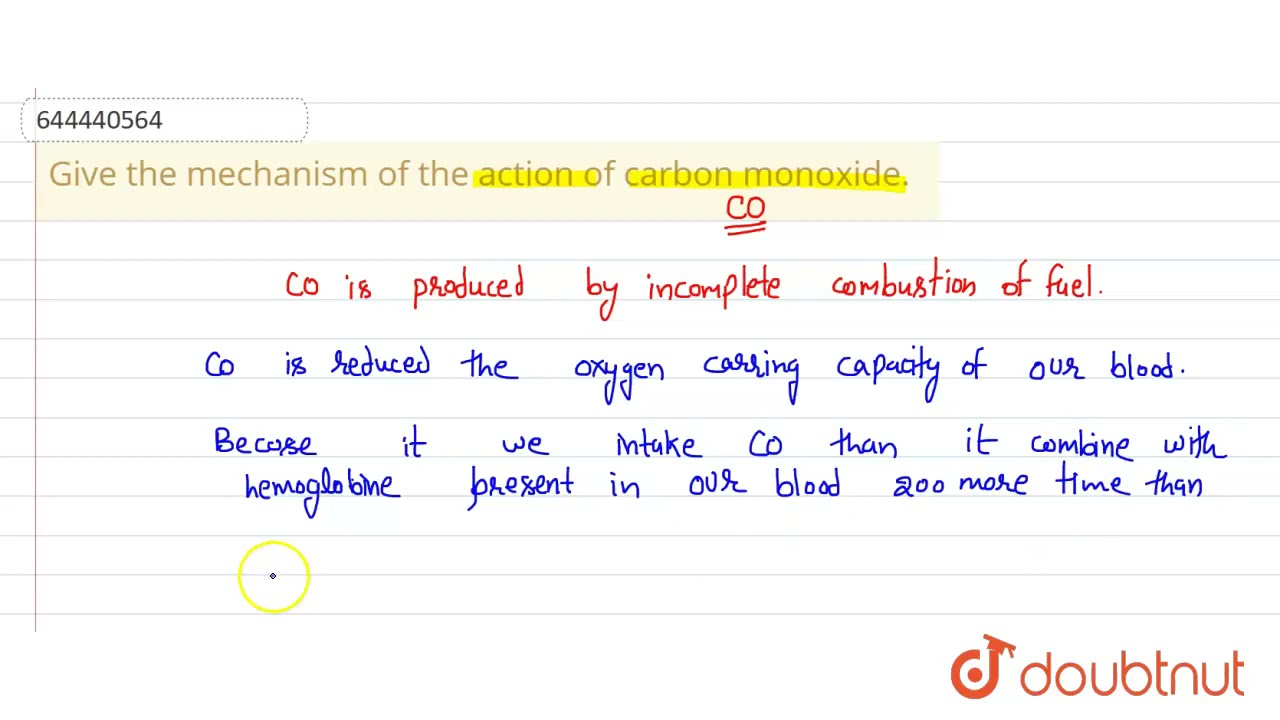 644440564
Give the mechanism of the action of carbon monoxide.
CO
CO is produced by incomplete combustion of fuel.
CO is reduced the oxygen carring capacity of our blood.
Becose it we intake CO than it combine with
hemoglobine present in our blood 200 more time than
doubtnut